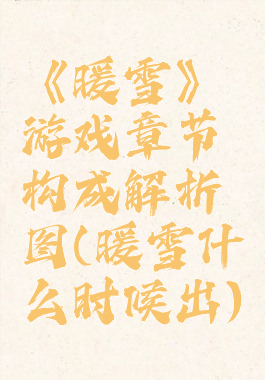 《暖雪》
游戏章节
构成解析
图(暖雪什
么时候出)